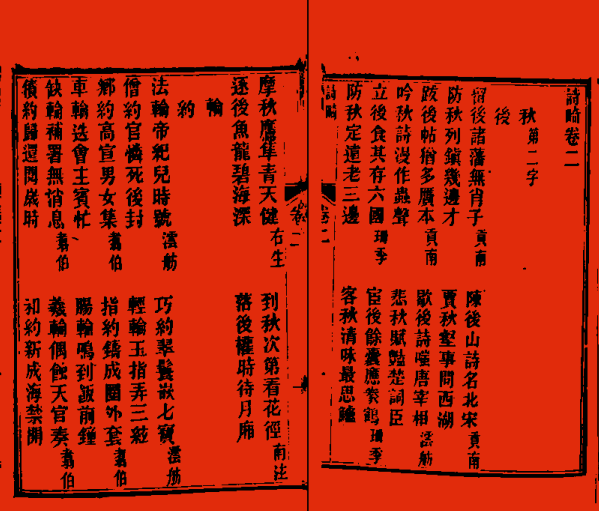 詩畸卷二
秋 第二字
後
留後諸藩無肖子 貢南 陳後山詩名北宋 貢南
防秋列鎮幾邊才 賈秋壑事問西湖
跋後帖猶多贗本 貢南 歇後詩嗤唐宰相 澐舫
吟秋詩漫作蟲聲 悲秋賦豔楚詞臣
立後食其存六國 珊季 宦後餘囊應紫鶴 珊季
防秋定遠老三邊 客秋清味最思鱸
詩畸 卷二
卷二
摩秋鷹隼青天健 右生 到秋次第看花徑 南注
逐後魚龍碧海深 落後權時待月廊
輪
約
法輪帝紀兒時號 澐舫 巧約翠鬟嵌七寶 澐舫
僧約官憐死後封 輕輪玉指弄三菘
鄉約高宣男女集 翥伯 指約鑄成圈外套 翥伯
車輪迭會主賓忙 腸輪鳴到飯前鐘
缺輪補署無消息 翥伯 羲輪偶蝕天官奏 翥伯
後約歸還閱歲時 和約新成海禁開